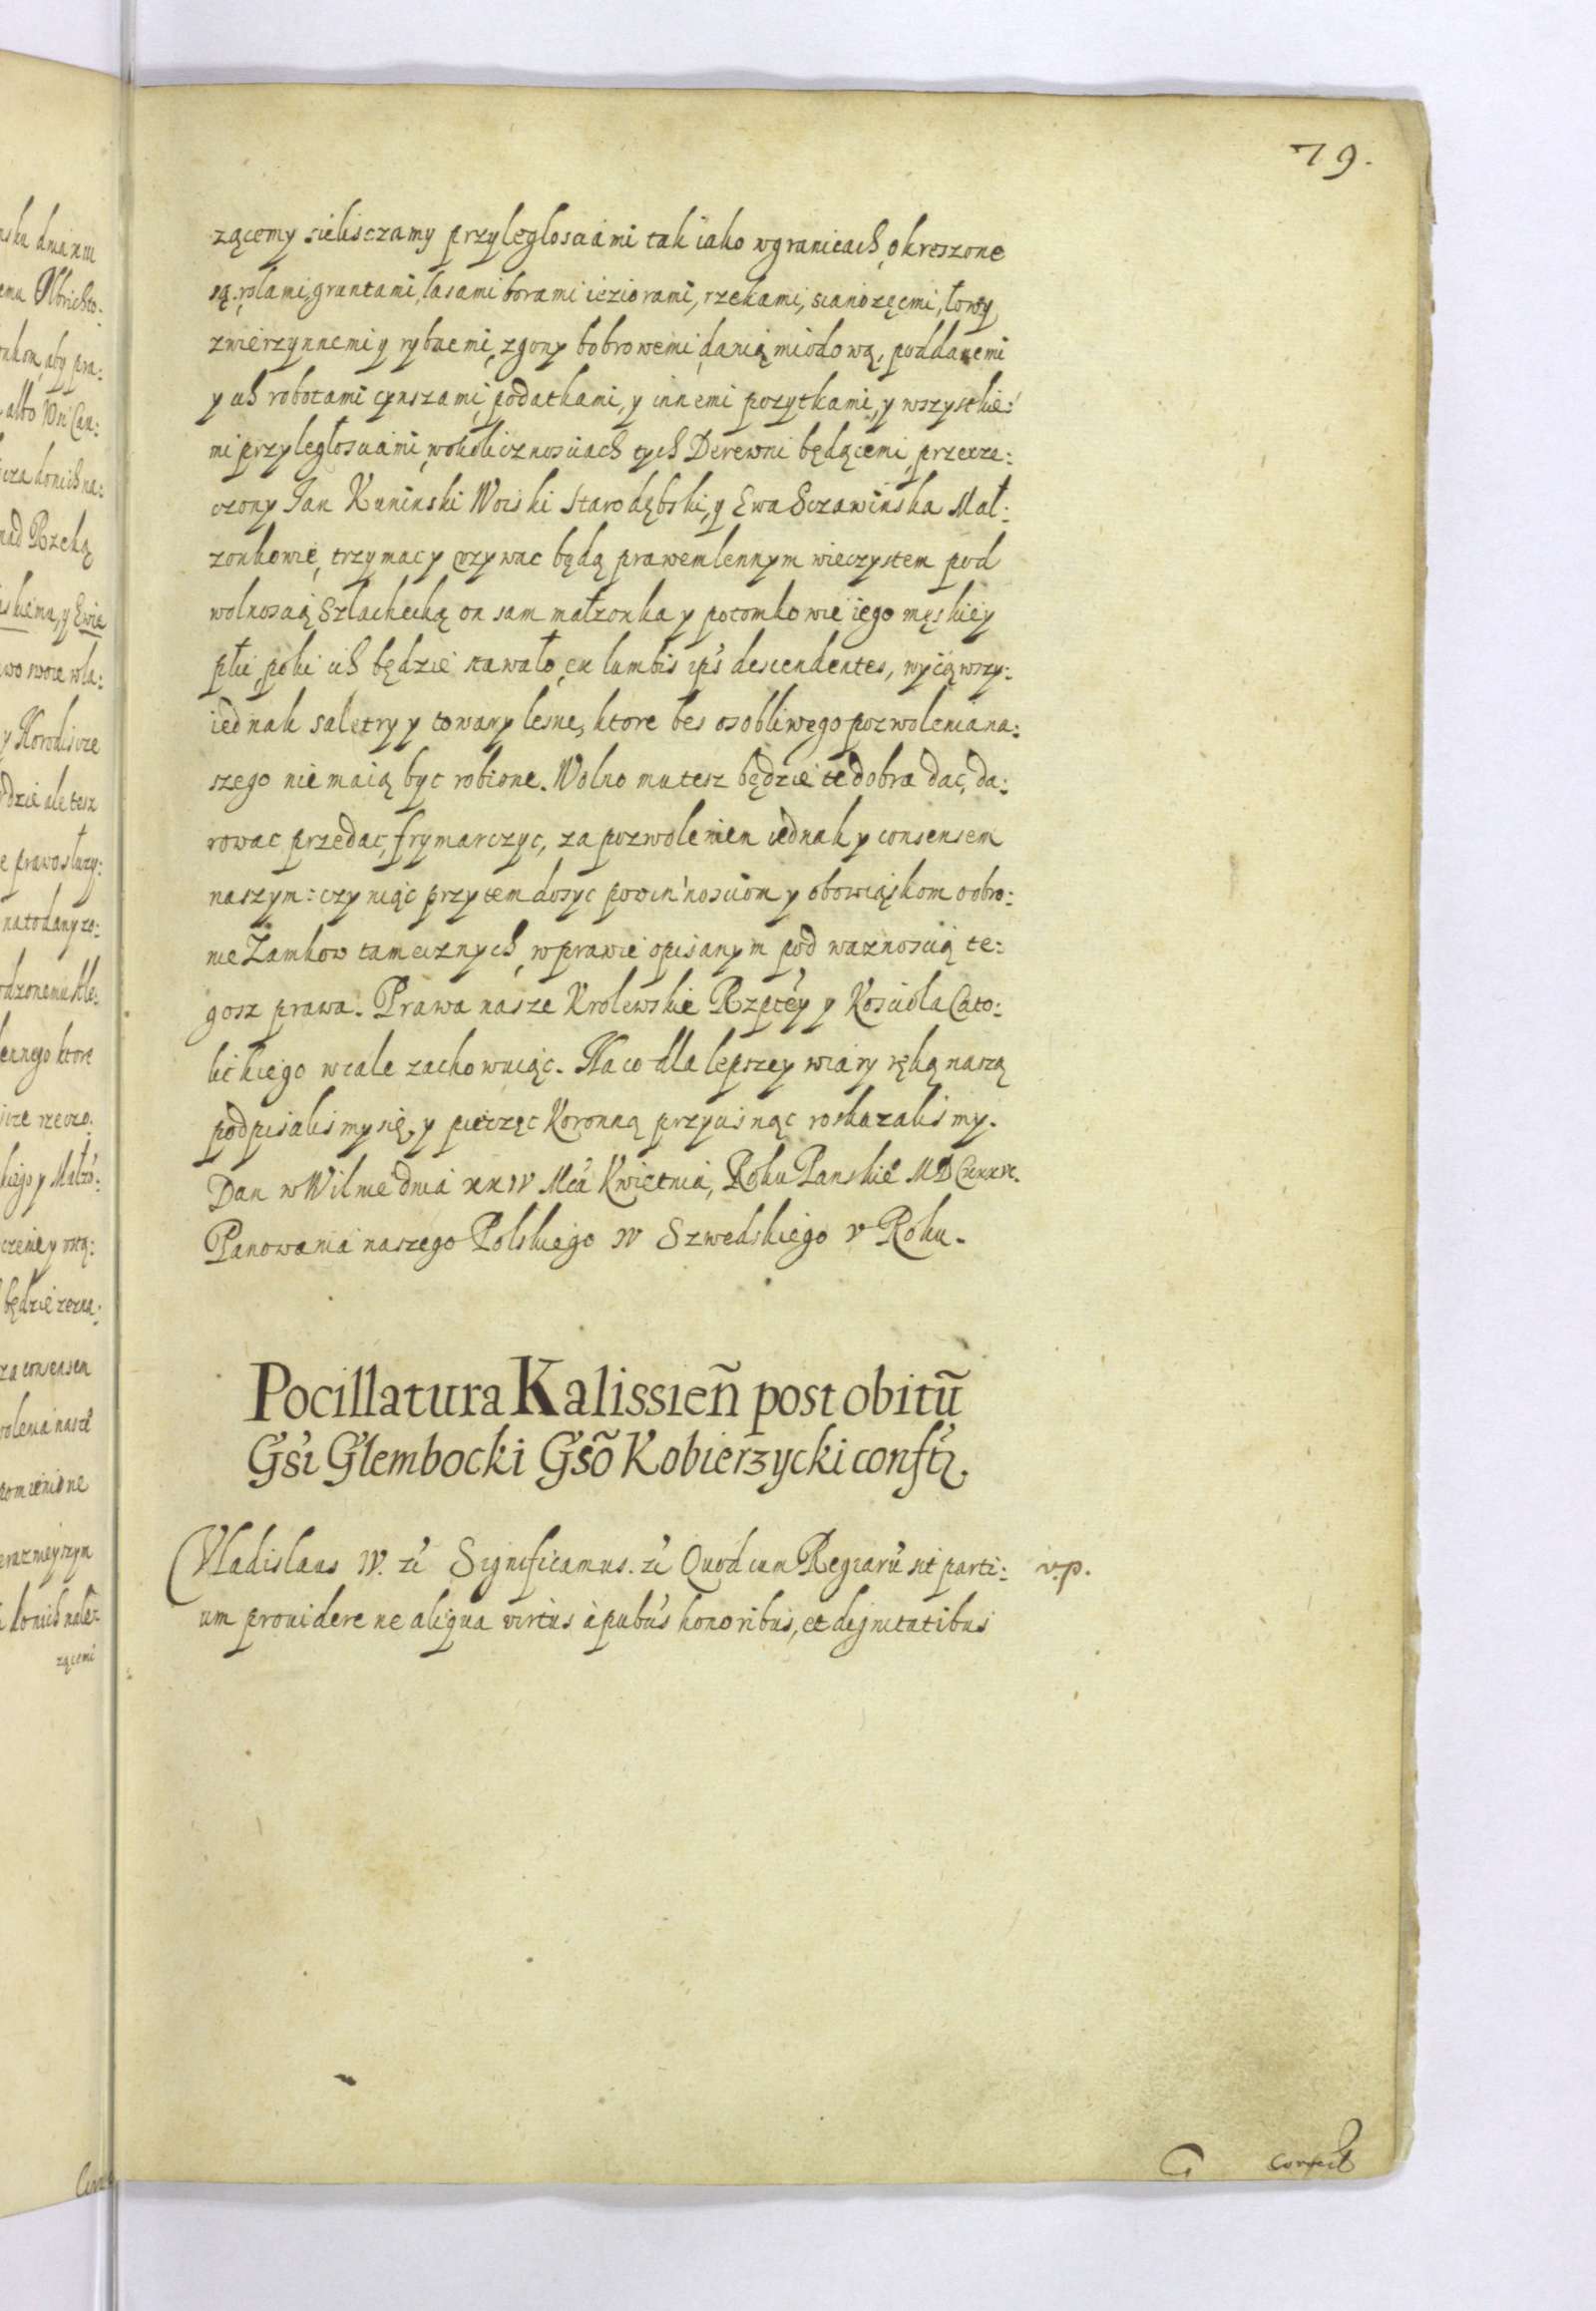 79.
zącemy sieliszczamy przyległosciami tak iako w granicach okreszone
są, rolami, gruntami, lasami borami ieziorami, rzekami, sianożęcmi, łowy
zwierzynnemi y rybnemi, zgony bobrowemi, danią miodową, poddanemi
y ich robotami czynszami, podatkami, y innemi pozytkami, y wszystkie:
mi przyległosciami, w okolicznosciach tych Derewni będącemi, przerze:
czony Jan Kuninski Woiski Starodębski, y Ewa Sczawinska Mał:
zonkowie, trzymac y vzywac będą prawem lennym wieczystem pod
wolnoscią Szlachecką on sam małzonka y potomkowie iego męskiey
płci, poki ich będzie stawało, ex lumbis ip's descendentes, wyiąwszy:
iednak saletry y towary lesne, ktore bes osobliwego pozwolenia na:
szego nie maią byc robione. Wolno mu tesz będzie te dobra dac, da:
rowac przedac, frymarczyc, za pozwoleniem iednak y consensem
naszym: czyniąc przytem dosyc powinnosciom y obowiąskom o obro:
nie Zamkow tamecznych, w prawie opisanym pod waznoscią te:
gosz prawa. Prawa nasze Krolewskie Rzptey y Kosciola Cato:
lickiego wcale zachowuiąc. Na co dla lepszey wiary ręką naszą
podpisalismy się, y pieczęc Koronną przycisnąc roskazalismy.
Dan w Wilnie dnia xxiv Mca Kwietnia, Roku Panskie MDCxxxvi.
Panowania naszego Polskiego IV Szwedskiego V Roku.
Pocillatura Kalissień post obitū
Gs̃i Glembocki Gs̃o Kobierzycki confť.
Vladislaus IV. zc̃ Significamus. zc̃ Quod cum Regiarũ sit parti: v.p.
um prouidere ne aliqua virtus à pubus honoribus, et dignitatibus
G Correct